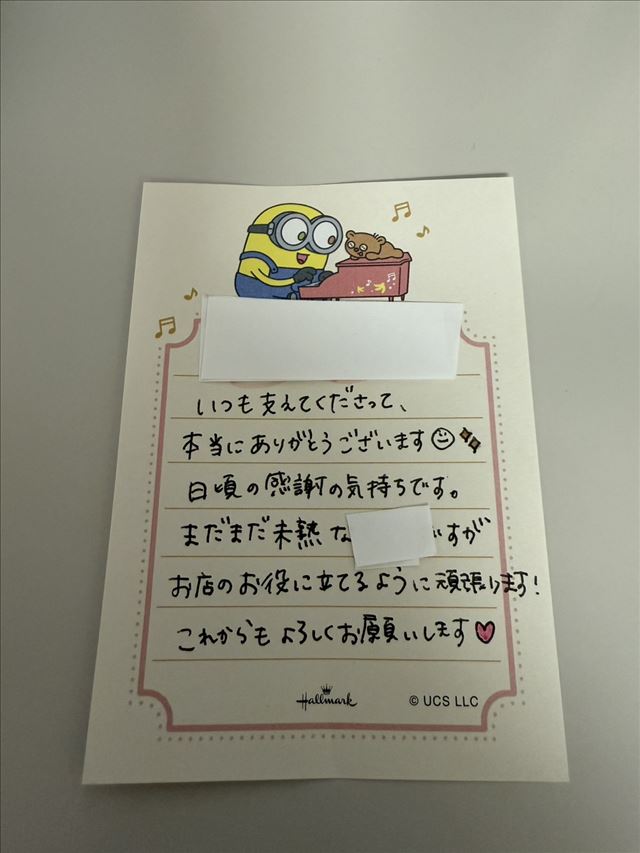 いつも支えてくださって、
本当にありがとうございます
日頃の感謝の気持ちです。
まだまだ未熟な すが
お店のお役に立てるように頑張ります!
これからもよろしくお願いします
Hallmark
© UCS LLC